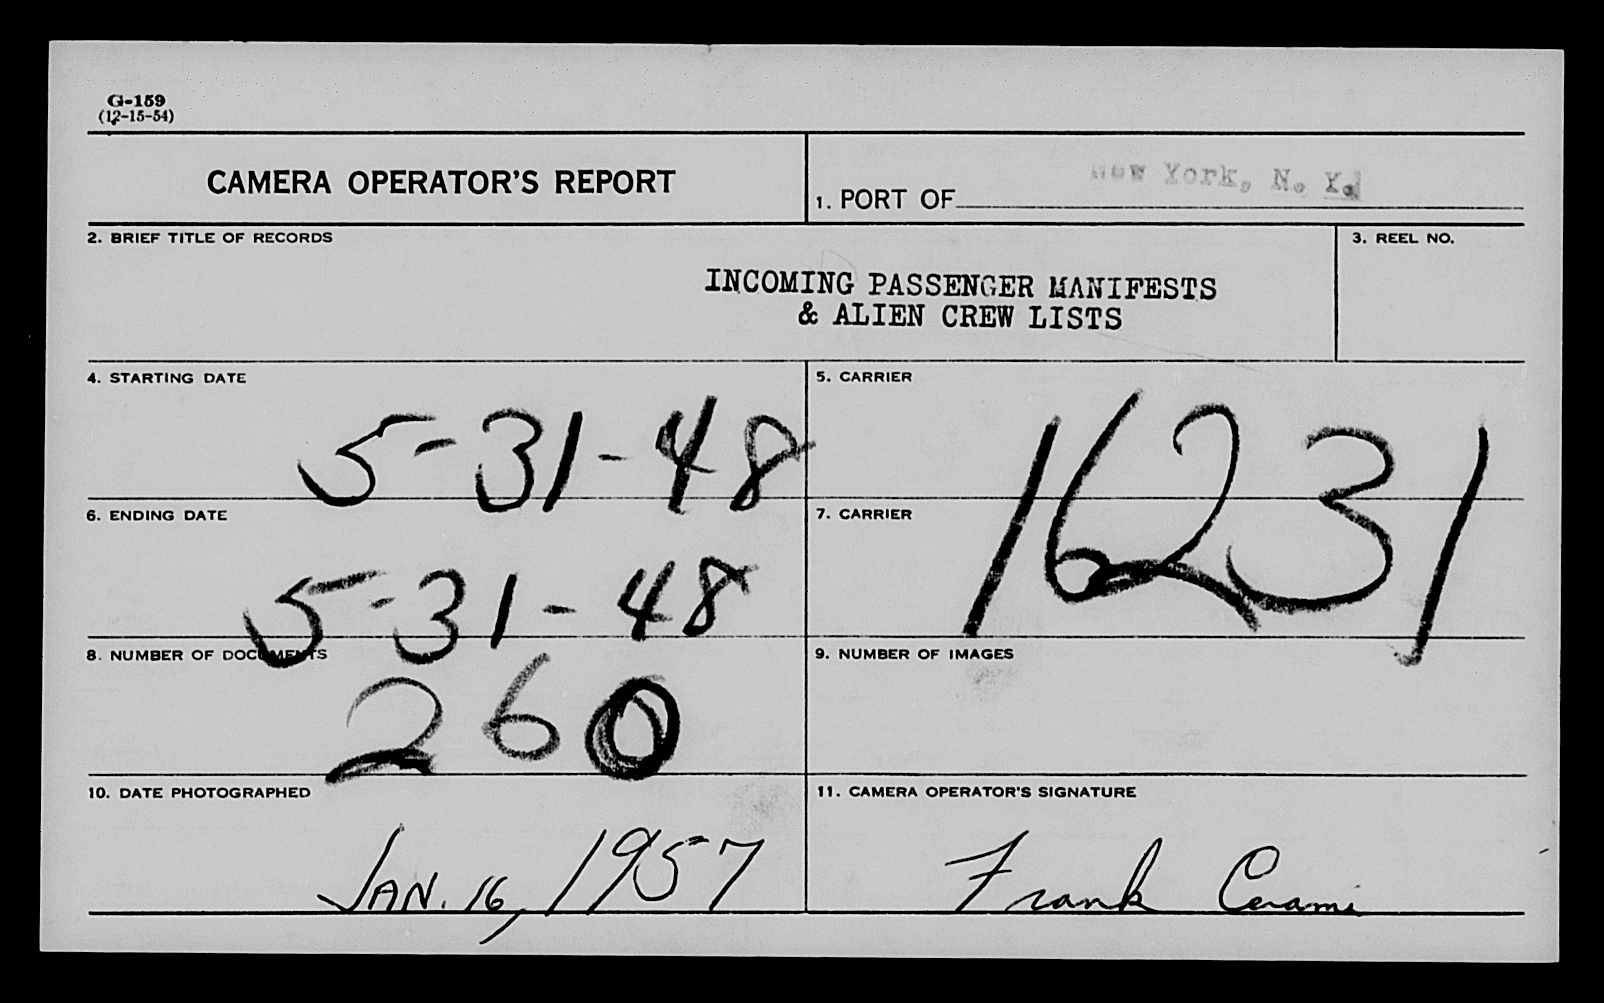 G-159
(12-15-54)
CAMERA OPERATOR'S REPORT
1. PORT OF New York, N. Y.
2. BRIEF TITLE OF RECORDS
INCOMING PASSENGER MANIFESTS
& ALIEN CREW LISTS
3. REEL NO.
4. STARTING DATE
5-31-48
5. CARRIER
16231
6. ENDING DATE
5-31-48
7. CARRIER
8. NUMBER OF DOCUMENTS
260
9. NUMBER OF IMAGES
10. DATE PHOTOGRAPHED
JAN. 16, 1957
11. CAMERA OPERATOR'S SIGNATURE
Frank Cerami